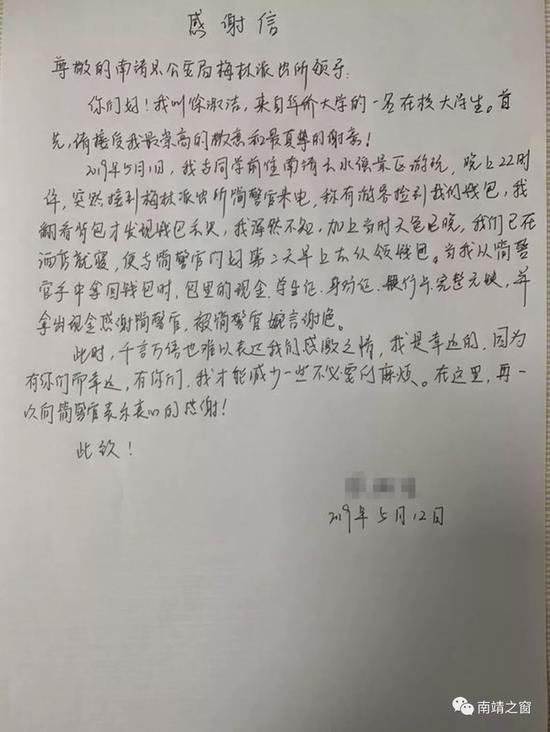 感谢信
尊敬的南靖县公安局梅林派出所领导:
你们好!我叫徐淑洁,来自华侨大学的一名在校大学生。首
先,请接受我最崇高的敬意和最真挚的谢意!
2019年5月11日,我与同学前往南靖云水谣景区游玩,晚上22时
许,突然接到梅林派出所简警官来电,称有游客捡到我的钱包,我
翻看背包才发现钱包丢失,我浑然不知,加上当时天色已晚,我们已在
酒店就寝,便与简警官约好第2天早上去认领钱包。当我从简警
官手中拿回钱包时,包里的现金.学生证.身份证.银行卡.完整无缺,并
拿出现金感谢简警官,被简警官婉言谢绝。
此时,千言万语也难以表达我的感激之情,我是幸运的,因为
有你们而幸运,有你们,我才能减少一些不必要的麻烦。在这里,再一
次向简警官表示衷心的感谢!
此致!
2019年5月12日
南靖之窗